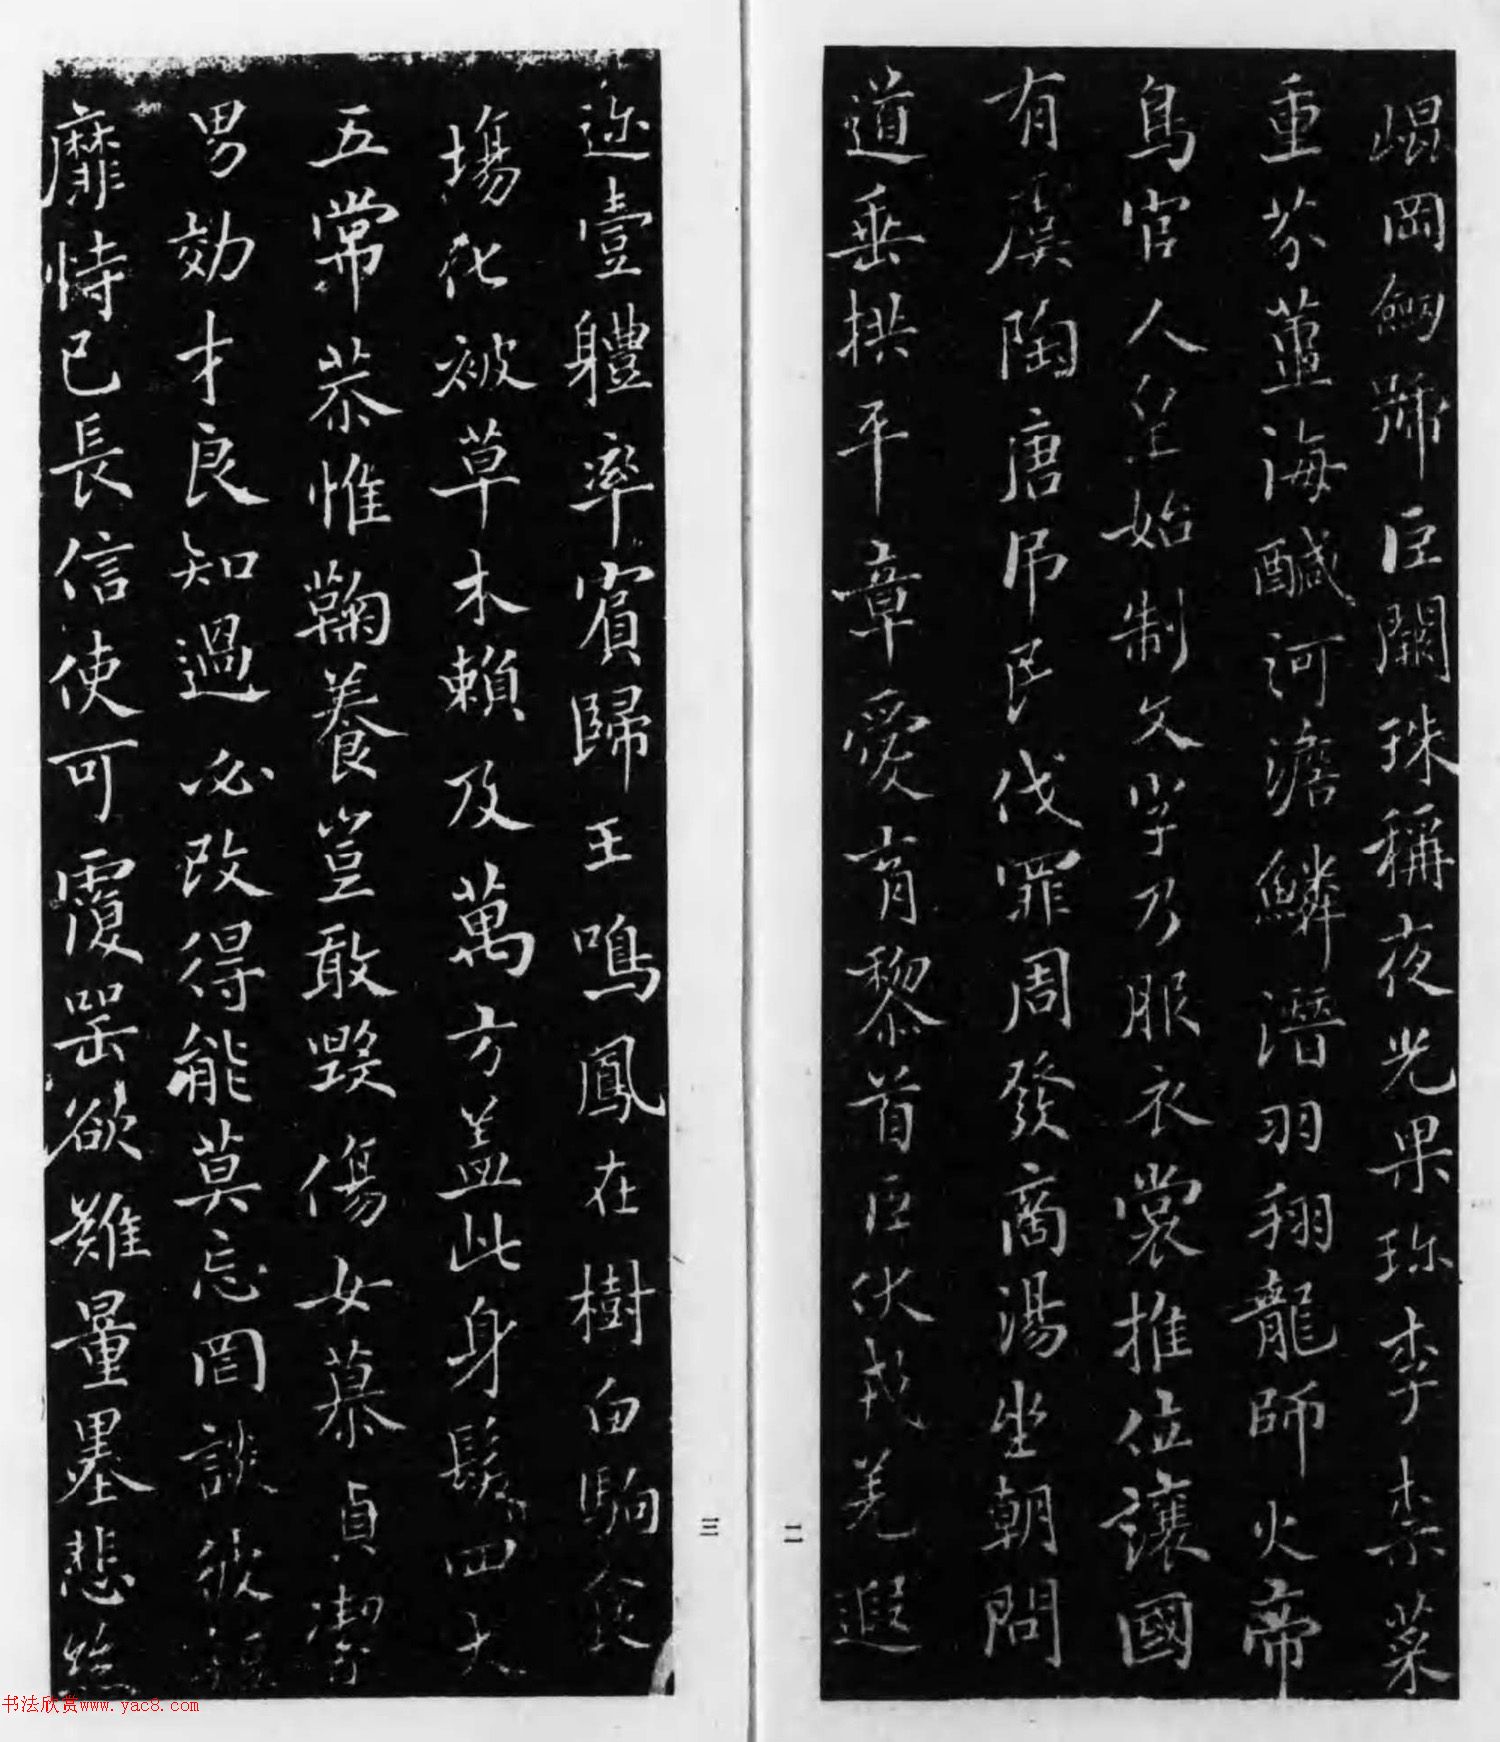 崐岡劒號臣闕珠稱夜光果珎李柰菜
重芥薑海醎河澹鱗潛羽翔龍師火帝
鳥官人皇始制文字乃服衣裳推位讓國
有虞陶唐吊民伐罪周發商湯坐朝問
道垂拱平章愛育黎首臣伏戎羌遐
二
迩壹軆率賓歸王鳴鳳在樹白駒食
場化被草木賴及萬方盖此身髮四大
五常恭惟鞠養豈敢毀傷女慕貞潔
男効才良知過必改得能莫忘罔談彼短
靡恃己長信使可覆器欲難量墨悲絲
三
书法欣赏www.yac8.com